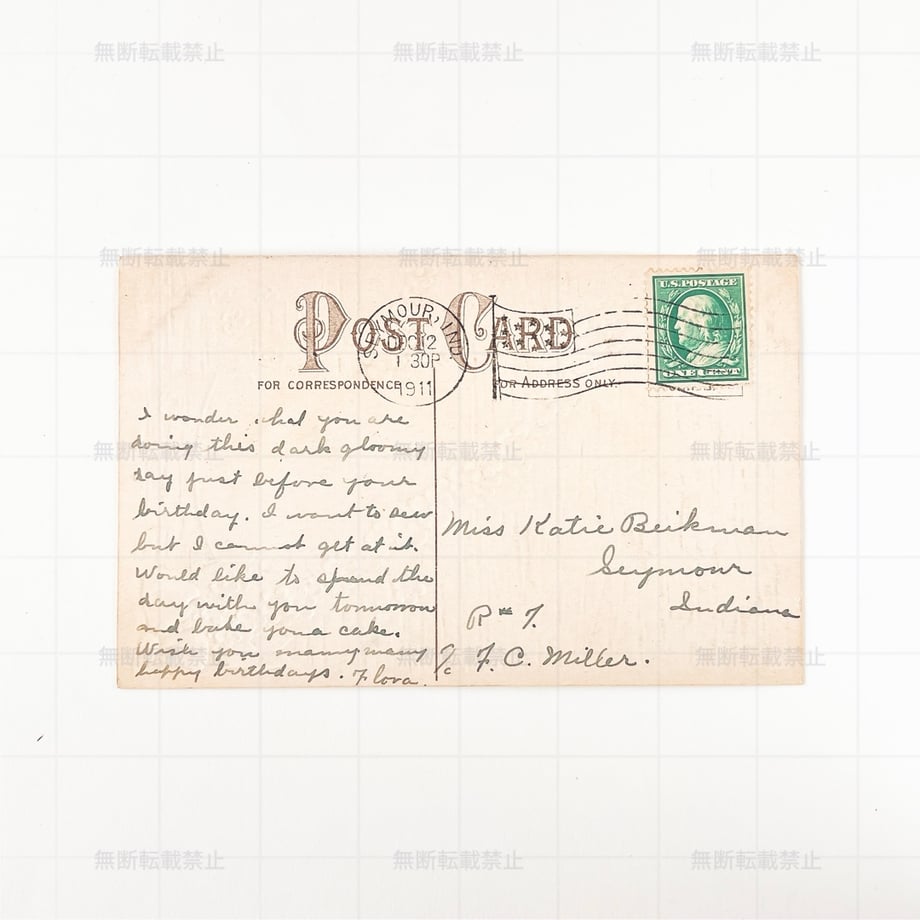 無断転載禁止 無断転載禁止 無断転載禁止
無断転載禁止 無断転載禁止 無断転載禁止
POST CARD
SEYMOUR, IND.
1 30P
1911
U.S. POSTAGE
ONE CENT
FOR CORRESPONDENCE
FOR ADDRESS ONLY.
I wonder what you are
doing this dark gloomy
day just before your
birthday. I want to sew
but I cannot get at it.
Would like to spend the
day with you tomorrow
and bake you a cake.
Wish you many many
happy birthdays. Flora.
Miss Katie Beikman
Seymour
Indiana
R# 7.
F. C. Miller.
無断転載禁止 無断転載禁止 無断転載禁止
無断転載禁止 無断転載禁止 無断転載禁止
無断転載禁止 無断転載禁止 無断転載禁止